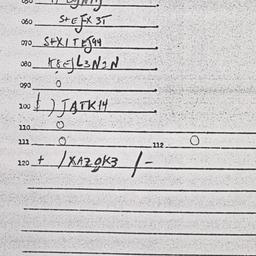 060 S+EFX3T
070 S+X1TEJ44
080 K8EJL3N2N
090 0
100 ) JATK14
110 0
111 0 112 0
120 + /XAZ9K3 /-